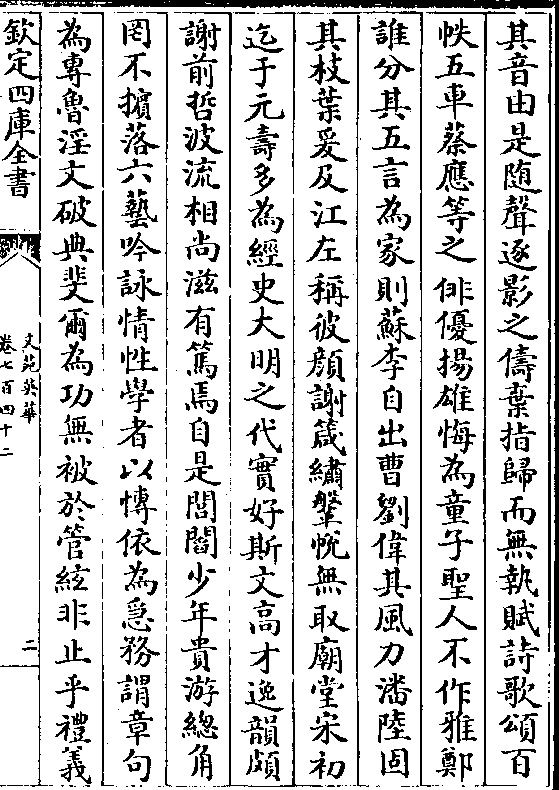 其音由是随聲逐影之儔棄指歸而無執賦詩歌頌百
帙五車蔡應等之俳優揚雄悔為童子聖人不作雅鄭
誰分其五言為家則蘇李自出曹劉偉其風力潘陸固
其枝葉爰及江左稱彼顔謝箴繡鞶帨無取廟堂宋初
迄于元嘉多為經史大明之代實好斯文高才逸韻頗
謝前哲波流相尚滋有篤焉自是閭閻少年貴游總角
罔不擯落六藝吟詠情性學者以愽依為急務謂章句
為專魯淫文破典斐爾為功無被於管絃非止乎禮義
欽定四庫全書
文苑英華
卷七百四十二
二